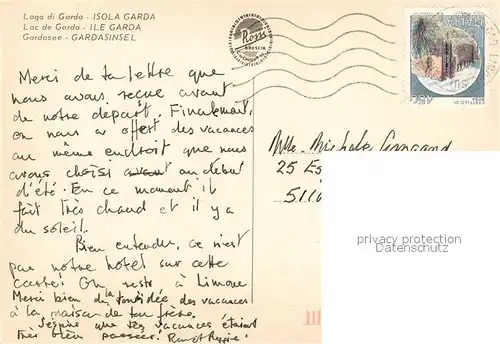 Lago di Garda - ISOLA GARDA
Lac de Garda - ILE GARDA
Gardasee - GARDASINSEL
Rossi
BRESCIA
ITALIA
450
Merci de ta lettre que
nous avons reçue avant
de notre départ. Finalement,
on nous a offert des vacances
au même endroit que nous
avons choisi avant au début
d'été. En ce moment il
fait très chaud et il y a
du soleil.
Bien entendu, ce n'est
pas notre hôtel sur cette
carte! On reste à Limone
Merci bien de la idée des vacances
à la maison de ton frère.
J'espère que tes vacances étaient
très bien passées!
Mlle. Michèle
25
privacy protection
DarkcasteService.com